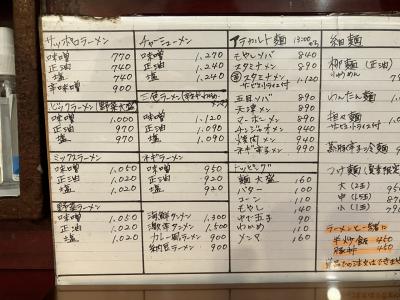 サッポロラーメン
味噌 770
正油 740
塩 740
辛味噌 900
ビックラーメン(野菜大盛)
味噌 1.000
正油 970
塩 970
ミックスラーメン
味噌 1.050
正油 1.020
塩 1.020
野菜ラーメン
味噌 1.050
正油 1.020
塩 1.020
チャーシューメン
味噌 1.270
正油 1.240
塩 1.240
三色ラーメン
味噌 1.120
正油 1.090
塩 1.090
ネギラーメン
味噌 950
正油 920
塩 920
海鮮タンメン 1.300
激辛タンメン 1.500
カレー風ラーメン 900
納豆ラーメン 900
アラカルト麺
もやしソバ 840
スタミナメン 890
スタミナメン 1.120
サービスライス付
五目ソバ 890
天津メン 890
マーボーメン 890
チンジャオメン 940
ネギ辛メン 990
トッピング
麺大盛 160
バター 100
コーン 110
もやし 140
ゆで玉子 90
わかめ 110
メンマ 160
細麺
柳麺 (正油)
わんたん麺
担々麺
サービスライス付
つけ麺
大 (2玉)
中 (1.5玉)
小 (1玉)
ラーメンと一緒に
半炒飯 450
豚丼 450